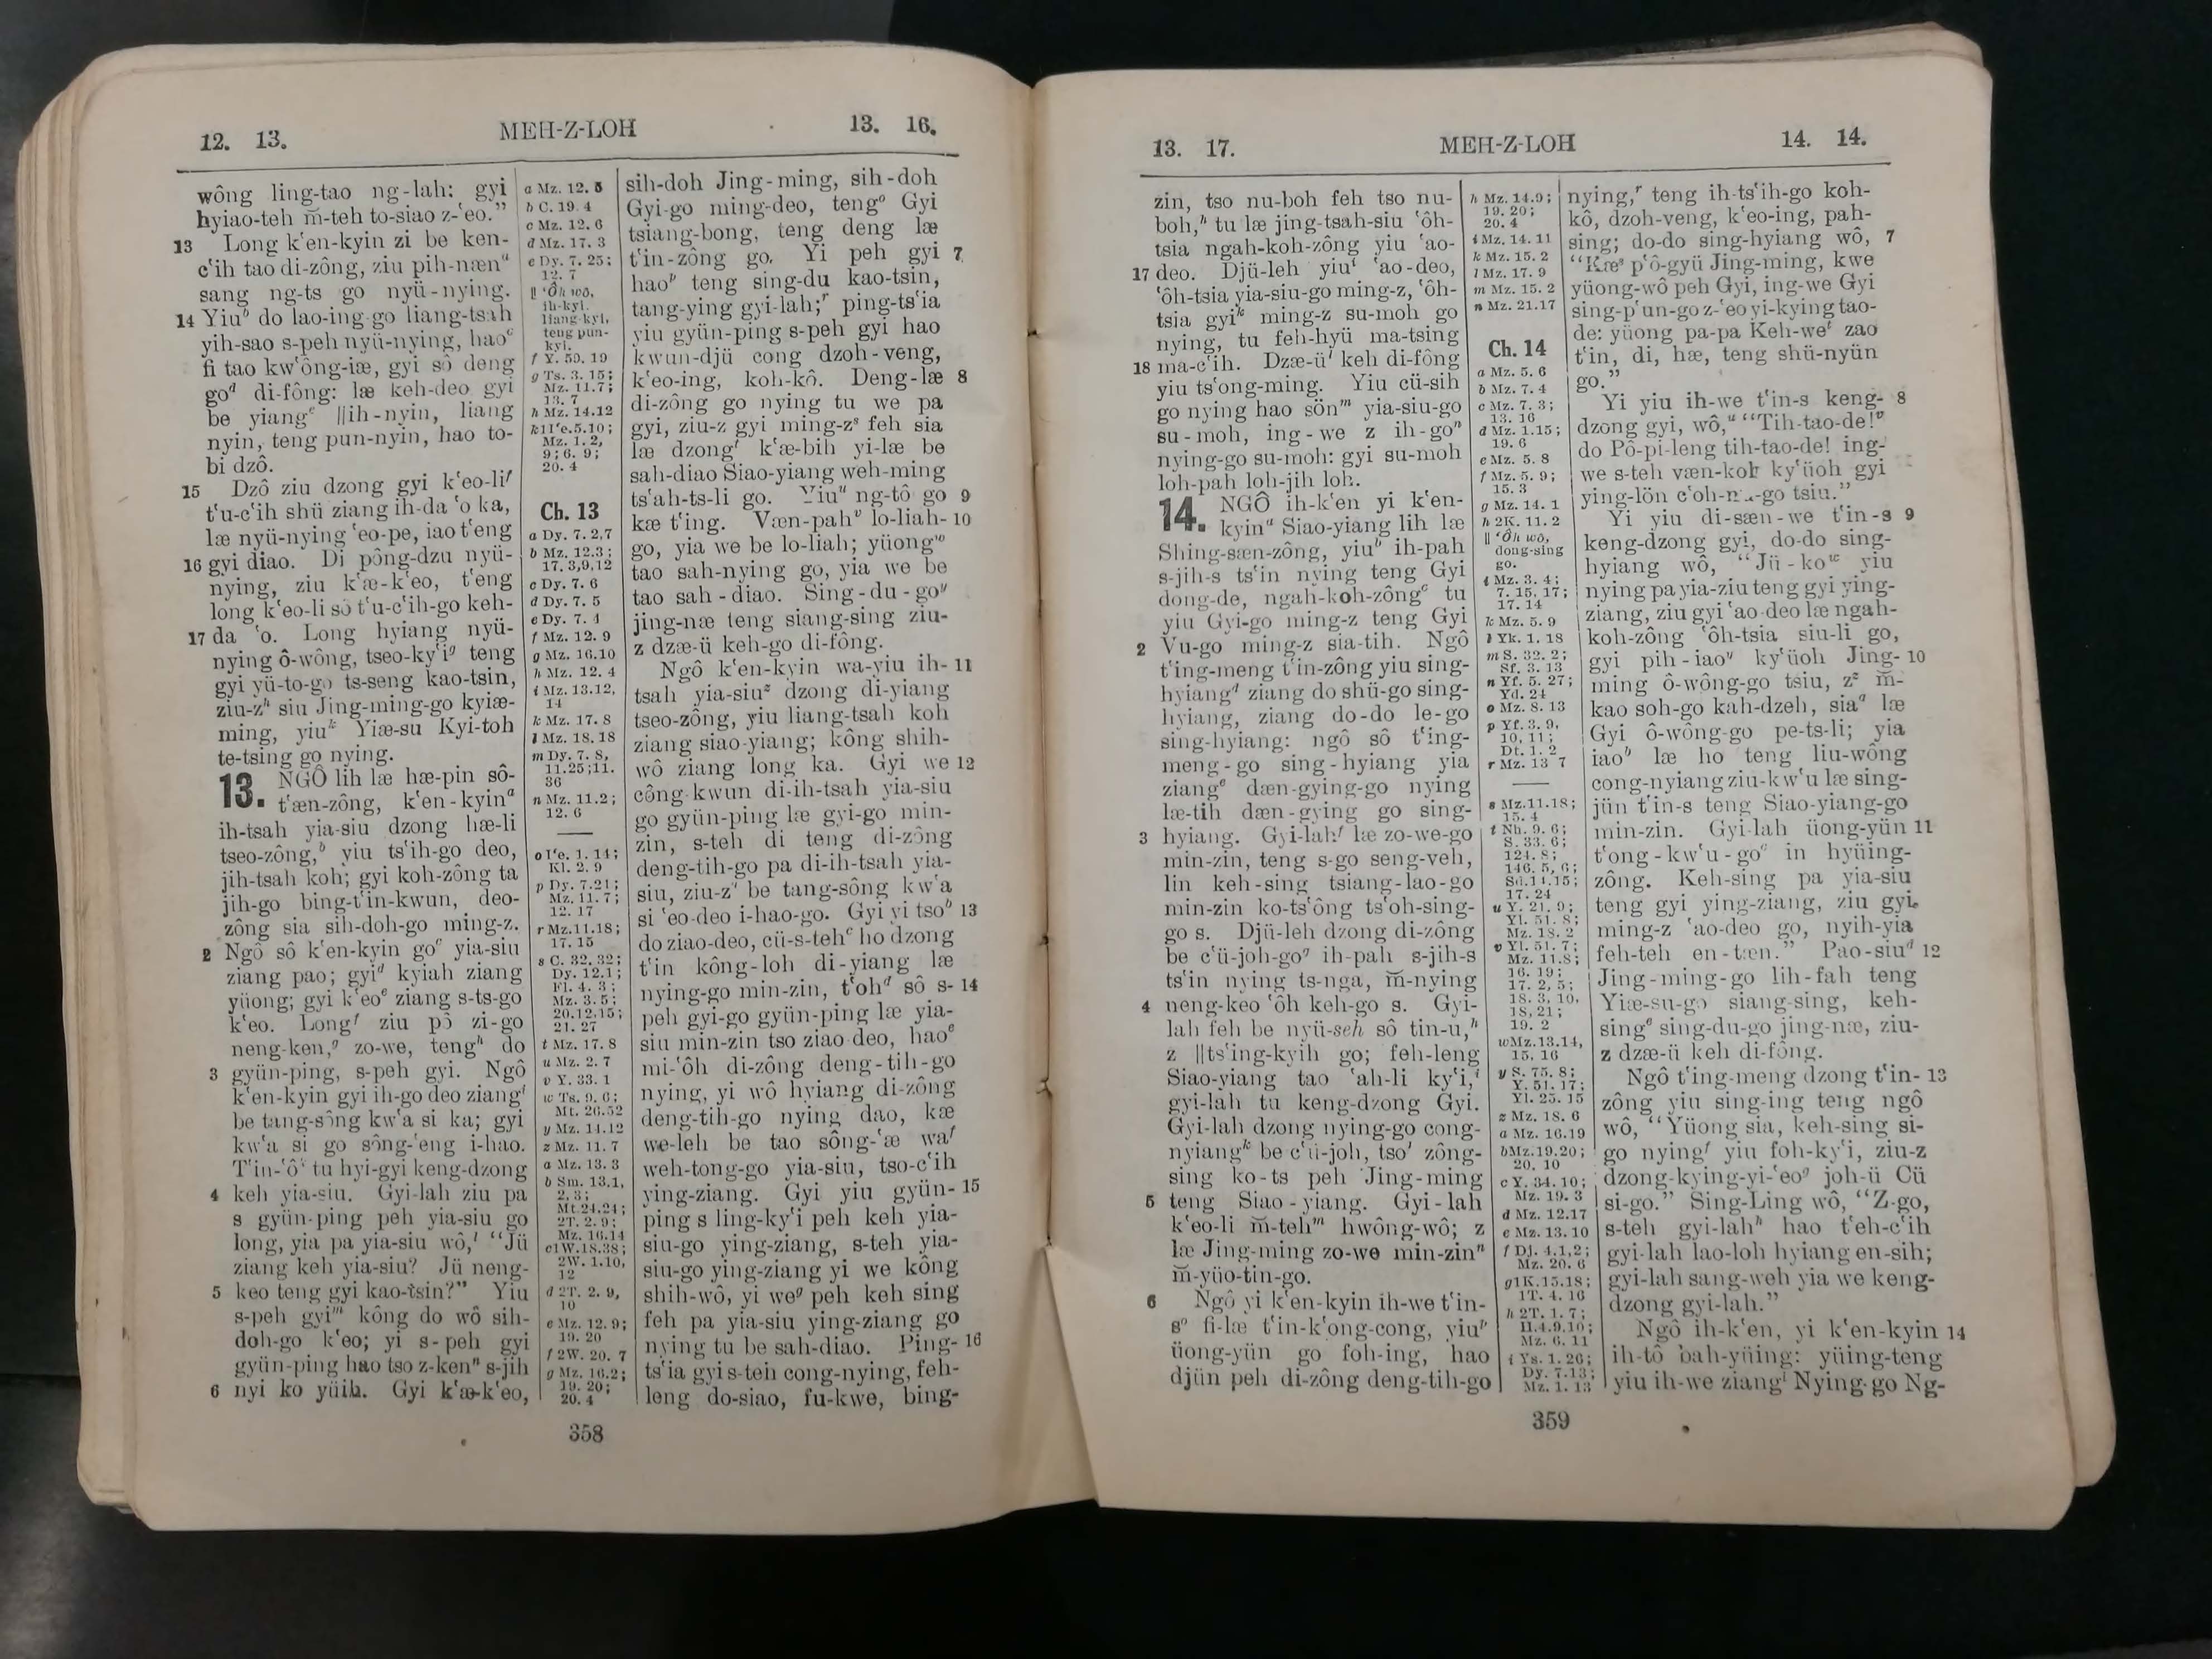 12. 13.
MEH-Z-LOH
13. 16.
wông ling-tao ng-lah: gyi
hyiao-teh m̆-teh to-siao z-‘eo.”
13 Long k‘en-kyin zi be ken-
c‘ih tao di-zông, ziu pih-nænᵃ
sang ng-ts go nyü-nying.
14 Yiuᵇ do lao-ing go liang-tsah
yih-sao s-peh nyü-nying, haoᶜ
fi tao kw‘ông-iæ, gyi sô deng
goᵈ di-fông: læ keh-deo gyi
be yiangᵉ ‖ih-nyin, liang
nyin, teng pun-nyin, hao to-
bi dzô.
15 Dzô ziu dzong gyi k‘eo-liᶠ
t‘u-c‘ih shü ziang ih-da ‘o ka,
læ nyü-nying ‘eo-pe, iao t‘eng
16 gyi diao. Di pông-dzu nyü-
nying, ziu k‘æ-k‘eo, t‘eng
long k‘eo-li sô t‘u-c‘ih-go keh-
17 da ‘o. Long hyiang nyü-
nying ô-wông, tseo-ky‘iᵍ teng
gyi yü-to-go ts-seng kao-tsin,
ziu-zʰ siu Jing-ming-go kyiæ-
ming, yiuᵏ Yiæ-su Kyi-toh
te-tsing go nying.
13. NGÔ lih læ hæ-pin sô-
t‘æn-zông, k‘en-kyinᵃ
ih-tsah yia-siu dzong hæ-li
tseo-zông,ᵇ yiu ts‘ih-go deo,
jih-tsah koh; gyi koh-zông ta
jih-go bing-t‘in-kwun, deo-
zông sia sih-doh-go ming-z.
2 Ngô sô k‘en-kyin goᶜ yia-siu
ziang pao; gyiᵈ kyiah ziang
yüong; gyi k‘eoᵉ ziang s-ts-go
k‘eo. Longᶠ ziu pô zi-go
neng-ken,ᵍ zo-we, tengʰ do
3 gyün-ping, s-peh gyi. Ngô
k‘en-kyin gyi ih-go deo ziangⁱ
be tang-sông kw‘a si ka; gyi
kw‘a si go sông-‘eng i-hao.
T‘in-‘ôᵏ tu hyi-gyi keng-dzong
4 keh yia-siu. Gyi-lah ziu pa
s gyün-ping peh yia-siu go
long, yia pa yia-siu wô,ˡ “Jü
ziang keh yia-siu? Jü neng-
5 keo teng gyi kao-tsin?” Yiu
s-peh gyiᵐ kông do wô sih-
doh-go k‘eo; yi s-peh gyi
gyün-ping hao tso z-kenⁿ s-jih
6 nyi ko yüih. Gyi k‘æ-k‘eo,
a Mz. 12. 5
b C. 19. 4
c Mz. 12. 6
d Mz. 17. 3
e Dy. 7. 25;
12. 7
‖ ‘Ôh wô,
ih-kyi,
liang-kyi,
teng pun-
kyi.
f Y. 59. 19
g Ts. 3. 15;
Mz. 11.7;
13. 7
h Mz. 14.12
Mz. 1. 2,
9; 6. 9;
20. 4
Ch. 13
a Dy. 7. 2,7
b Mz. 12.3;
17. 3,9,12
c Dy. 7. 6
d Dy. 7. 5
e Dy. 7. 4
f Mz. 12. 9
g Mz. 16.10
h Mz. 12. 4
i Mz. 13.12,
14
k Mz. 17. 8
l Mz. 18. 18
m Dy. 7. 8,
11.25;11.
36
n Mz. 11.2;
12. 6
Kl. 2. 9
p Dy. 7.21;
Mz. 11. 7;
12. 17
r Mz.11.18;
17. 15
s C. 32. 32;
Dy. 12.1;
Fl. 4. 3;
Mz. 3. 5;
20.12.15;
21. 27
t Mz. 17. 8
u Mz. 2. 7
v Y. 33. 1
w Ts. 9. 6;
Mt. 26.52
y Mz. 14.12
z Mz. 11. 7
a Mz. 13. 3
b Sm. 13.1,
2, 3;
Mt.24.24;
2T. 2. 9;
Mz. 16.14
c1W.18.38;
2W. 1.10,
12
d 2T. 2. 9,
10
e Mz. 12. 9;
19. 20
f 2W. 20. 7
g Mz. 16.2;
19. 20;
20. 4
sih-doh Jing-ming, sih-doh
Gyi-go ming-deo, tengᵒ Gyi
tsiang-bong, teng deng læ
t‘in-zông go. Yi peh gyi 7
haoᵖ teng sing-du kao-tsin,
tang-ying gyi-lah;ʳ ping-ts‘ia
yiu gyün-ping s-peh gyi hao
kwun-djü cong dzoh-veng,
k‘eo-ing, koh-kô. Deng-læ 8
di-zông go nying tu we pa
gyi, ziu-z gyi ming-zˢ feh sia
læ dzongᵗ k‘æ-bih yi-læ be
sah-diao Siao-yiang weh-ming
ts‘ah-ts-li go. Yiuᵘ ng-tô go 9
kæ t‘ing. Væn-pahᵛ lo-liah- 10
go, yia we be lo-liah; yüongʷ
tao sah-nying go, yia we be
tao sah-diao. Sing-du-goʸ
jing-næ teng siang-sing ziu-
z dzæ-ü keh-go di-fông.
Ngô k‘en-kyin wa-yiu ih- 11
tsah yia-siuᶻ dzong di-yiang
tseo-zông, yiu liang-tsah koh
ziang siao-yiang; kông shih-
wô ziang long ka. Gyi we 12
công-kwun di-ih-tsah yia-siu
go gyün-ping læ gyi-go min-
zin, s-teh di teng di-zông
deng-tih-go pa di-ih-tsah yia-
siu, ziu-zᵃ be tang-sông kw‘a
si ‘eo-deo i-hao-go. Gyi yi tsoᵇ 13
do ziao-deo, cü-s-tehᶜ ho dzong
t‘in kông-loh di-yiang læ
nying-go min-zin, t‘ohᵈ sô s- 14
peh gyi-go gyün-ping læ yia-
siu min-zin tso ziao-deo, haoᵉ
mi-‘ôh di-zông deng-tih-go
nying, yi wô hyiang di-zông
deng-tih-go nying dao, kæ
we-leh be tao sông-‘æ waᶠ
weh-tong-go yia-siu, tso-c‘ih
ying-ziang. Gyi yiu gyün- 15
ping s ling-ky‘i peh keh yia-
siu-go ying-ziang, s-teh yia-
siu-go ying-ziang yi we kông
shih-wô, yi weᵍ peh keh sing
feh pa yia-siu ying-ziang go
nying tu be sah-diao. Ping- 16
ts‘ia gyi s-teh cong-nying, feh-
leng do-siao, fu-kwe, bing-
358
13. 17.
MEH-Z-LOH
14. 14.
zin, tso nu-boh feh tso nu-
boh,ʰ tu læ jing-tsah-siu ‘ôh-
tsia ngah-koh-zông yiu ‘ao-
17 deo. Djü-leh yiuⁱ ‘ao-deo,
‘ôh-tsia yia-siu-go ming-z, ‘ôh-
tsia gyiᵏ ming-z su-moh go
nying, tu feh-hyü ma-tsing
18 ma-c‘ih. Dzæ-üˡ keh di-fông
yiu ts‘ong-ming. Yiu cü-sih
go nying hao sönᵐ yia-siu-go
su-moh, ing-we z ih-goⁿ
nying-go su-moh: gyi su-moh
loh-pah loh-jih loh.
14. NGÔ ih-k‘en yi k‘en-
kyinᵃ Siao-yiang lih læ
Shing-sæn-zông, yiuᵇ ih-pah
s-jih-s ts‘in nying teng Gyi
dong-de, ngah-koh-zôngᶜ tu
yiu Gyi-go ming-z teng Gyi
2 Vu-go ming-z sia-tih. Ngô
t‘ing-meng t‘in-zông yiu sing-
hyiangᵈ ziang do shü-go sing-
hyiang, ziang do-do le-go
sing-hyiang: ngô sô t‘ing-
meng-go sing-hyiang yia
ziangᵉ dæn-gying-go nying
læ-tih dæn-gying go sing-
3 hyiang. Gyi-lahᶠ læ zo-we-go
min-zin, teng s-go seng-veh,
lin keh-sing tsiang-lao-go
min-zin ko-ts‘ông ts‘oh-sing-
go s. Djü-leh dzong di-zông
be c‘ü-joh-goᵍ ih-pah s-jih-s
ts‘in nying ts-nga, m̆-nying
4 neng-keo ‘ôh keh-go s. Gyi-
lah feh be nyü-seh sô tin-u,ʰ
z ‖ts‘ing-kyih go; feh-leng
Siao-yiang tao ‘ah-li ky‘i,ⁱ
gyi-lah tu keng-dzong Gyi.
Gyi-lah dzong nying-go cong-
nyiangᵏ be c‘ü-joh, tsoˡ zông-
sing ko-ts peh Jing-ming
5 teng Siao-yiang. Gyi-lah
k‘eo-li m̆-tehᵐ hwông-wô; z
læ Jing-ming zo-we min-zinⁿ
m̆-yüo-tin-go.
6 Ngô yi k‘en-kyin ih-we t‘in-
sᵒ fi-læ t‘in-k‘ong-cong, yiuᵖ
üong-yün go foh-ing, hao
djün peh di-zông deng-tih-go
h Mz. 14.9;
19. 20;
20. 4
i Mz. 14. 11
k Mz. 15. 2
l Mz. 17. 9
m Mz. 15. 2
n Mz. 21.17
Ch. 14
a Mz. 5. 6
b Mz. 7. 4
c Mz. 7. 3;
13. 16
d Mz. 1.15;
19. 6
e Mz. 5. 8
f Mz. 5. 9;
15. 3
g Mz. 14. 1
h 2K. 11. 2
‖ ‘Ôh wô,
dong-sing
go.
i Mz. 3. 4;
7. 15, 17;
17. 14
k Mz. 5. 9
l Yk. 1. 18
m S. 32. 2;
Sf. 3. 13
n Yf. 5. 27;
Yd. 24
o Mz. 8. 13
p Yf. 3. 9,
10, 11;
Dt. 1. 2
r Mz. 13 7
s Mz.11.18;
15. 4
t Nh. 9. 6;
S. 33. 6;
124. 8;
146. 5, 6;
Sd.14.15;
17. 24
u Y. 21. 9;
Yl. 51. 8;
Mz. 18. 2
v Yl. 51. 7;
Mz. 11.8;
16. 19;
17. 2, 5;
18. 3, 10,
18, 21;
19. 2
wMz.13.14,
15. 16
y S. 75. 8;
Y. 51. 17;
Yl. 25. 15
z Mz. 18. 6
a Mz. 16.19
bMz.19.20;
20. 10
c Y. 34. 10;
Mz. 19. 3
d Mz. 12.17
e Mz. 13. 10
f Dj. 4.1,2;
Mz. 20. 6
g1K.15.18;
1T. 4. 16
h 2T. 1. 7;
Mz. 6. 11
i Ys. 1. 26;
Dy. 7.13;
Mz. 1. 13
nying,ʳ teng ih-ts‘ih-go koh-
kô, dzoh-veng, k‘eo-ing, pah-
sing; do-do sing-hyiang wô, 7
“Kæˢ p‘ô-gyü Jing-ming, kwe
yüong-wô peh Gyi, ing-we Gyi
sing-p‘un-go z-‘eo yi-kying tao-
de: yüong pa-pa Keh-weᵗ zao
t‘in, di, hæ, teng shü-nyün
go.”
Yi yiu ih-we t‘in-s keng- 8
dzong gyi, wô,ᵘ “Tih-tao-de!ᵛ
do Pô-pi-leng tih-tao-de! ing-
we s-teh væn-koh ky‘üoh gyi
ying-lön tsiu.”
Yi yiu di-sæn-we t‘in-s 9
keng-dzong gyi, do-do sing-
hyiang wô, “Jü-koʷ yiu
nying pa yia-ziu teng gyi ying-
ziang, ziu gyi ‘ao-deo læ ngah-
koh-zông ‘ôh-tsia siu-li go,
gyi pih-iaoʸ ky‘üoh Jing- 10
ming ô-wông-go tsiu, zᶻ m̆-
kao soh-go kah-dzeh, siaᵃ læ
Gyi ô-wông-go pe-ts-li; yia
iaoᵇ læ ho teng liu-wông
cong-nyiang ziu-kw‘u læ sing-
jün t‘in-s teng Siao-yiang-go
min-zin. Gyi-lah üong-yün 11
t‘ong-kw‘u-goᶜ in hyüing-
zông. Keh-sing pa yia-siu
teng gyi ying-ziang, ziu gyi
ming-z ‘ao-deo go, nyih-yia
feh-teh en-tæn.” Pao-siuᵈ 12
Jing-ming-go lih-fah teng
Yiæ-su-go siang-sing, keh-
singᵉ sing-du-go jing-næ, ziu-
z dzæ-ü keh di-fông.
Ngô t‘ing-meng dzong t‘in- 13
zông yiu sing-ing teng ngô
wô, “Yüong sia, keh-sing si-
go nyingᶠ yiu foh-ky‘i, ziu-z
dzong-kying-yi-‘eoᵍ joh-ü Cü
si-go.” Sing-Ling wô, “Z-go,
s-teh gyi-lahʰ hao t‘eh-c‘ih
gyi-lah lao-loh hyiang en-sih;
gyi-lah sang-weh yia we keng-
dzong gyi-lah.”
Ngô ih-k‘en, yi k‘en-kyin 14
ih-tô bah-yüing: yüing-teng
yiu ih-we ziangⁱ Nying-go Ng-
359